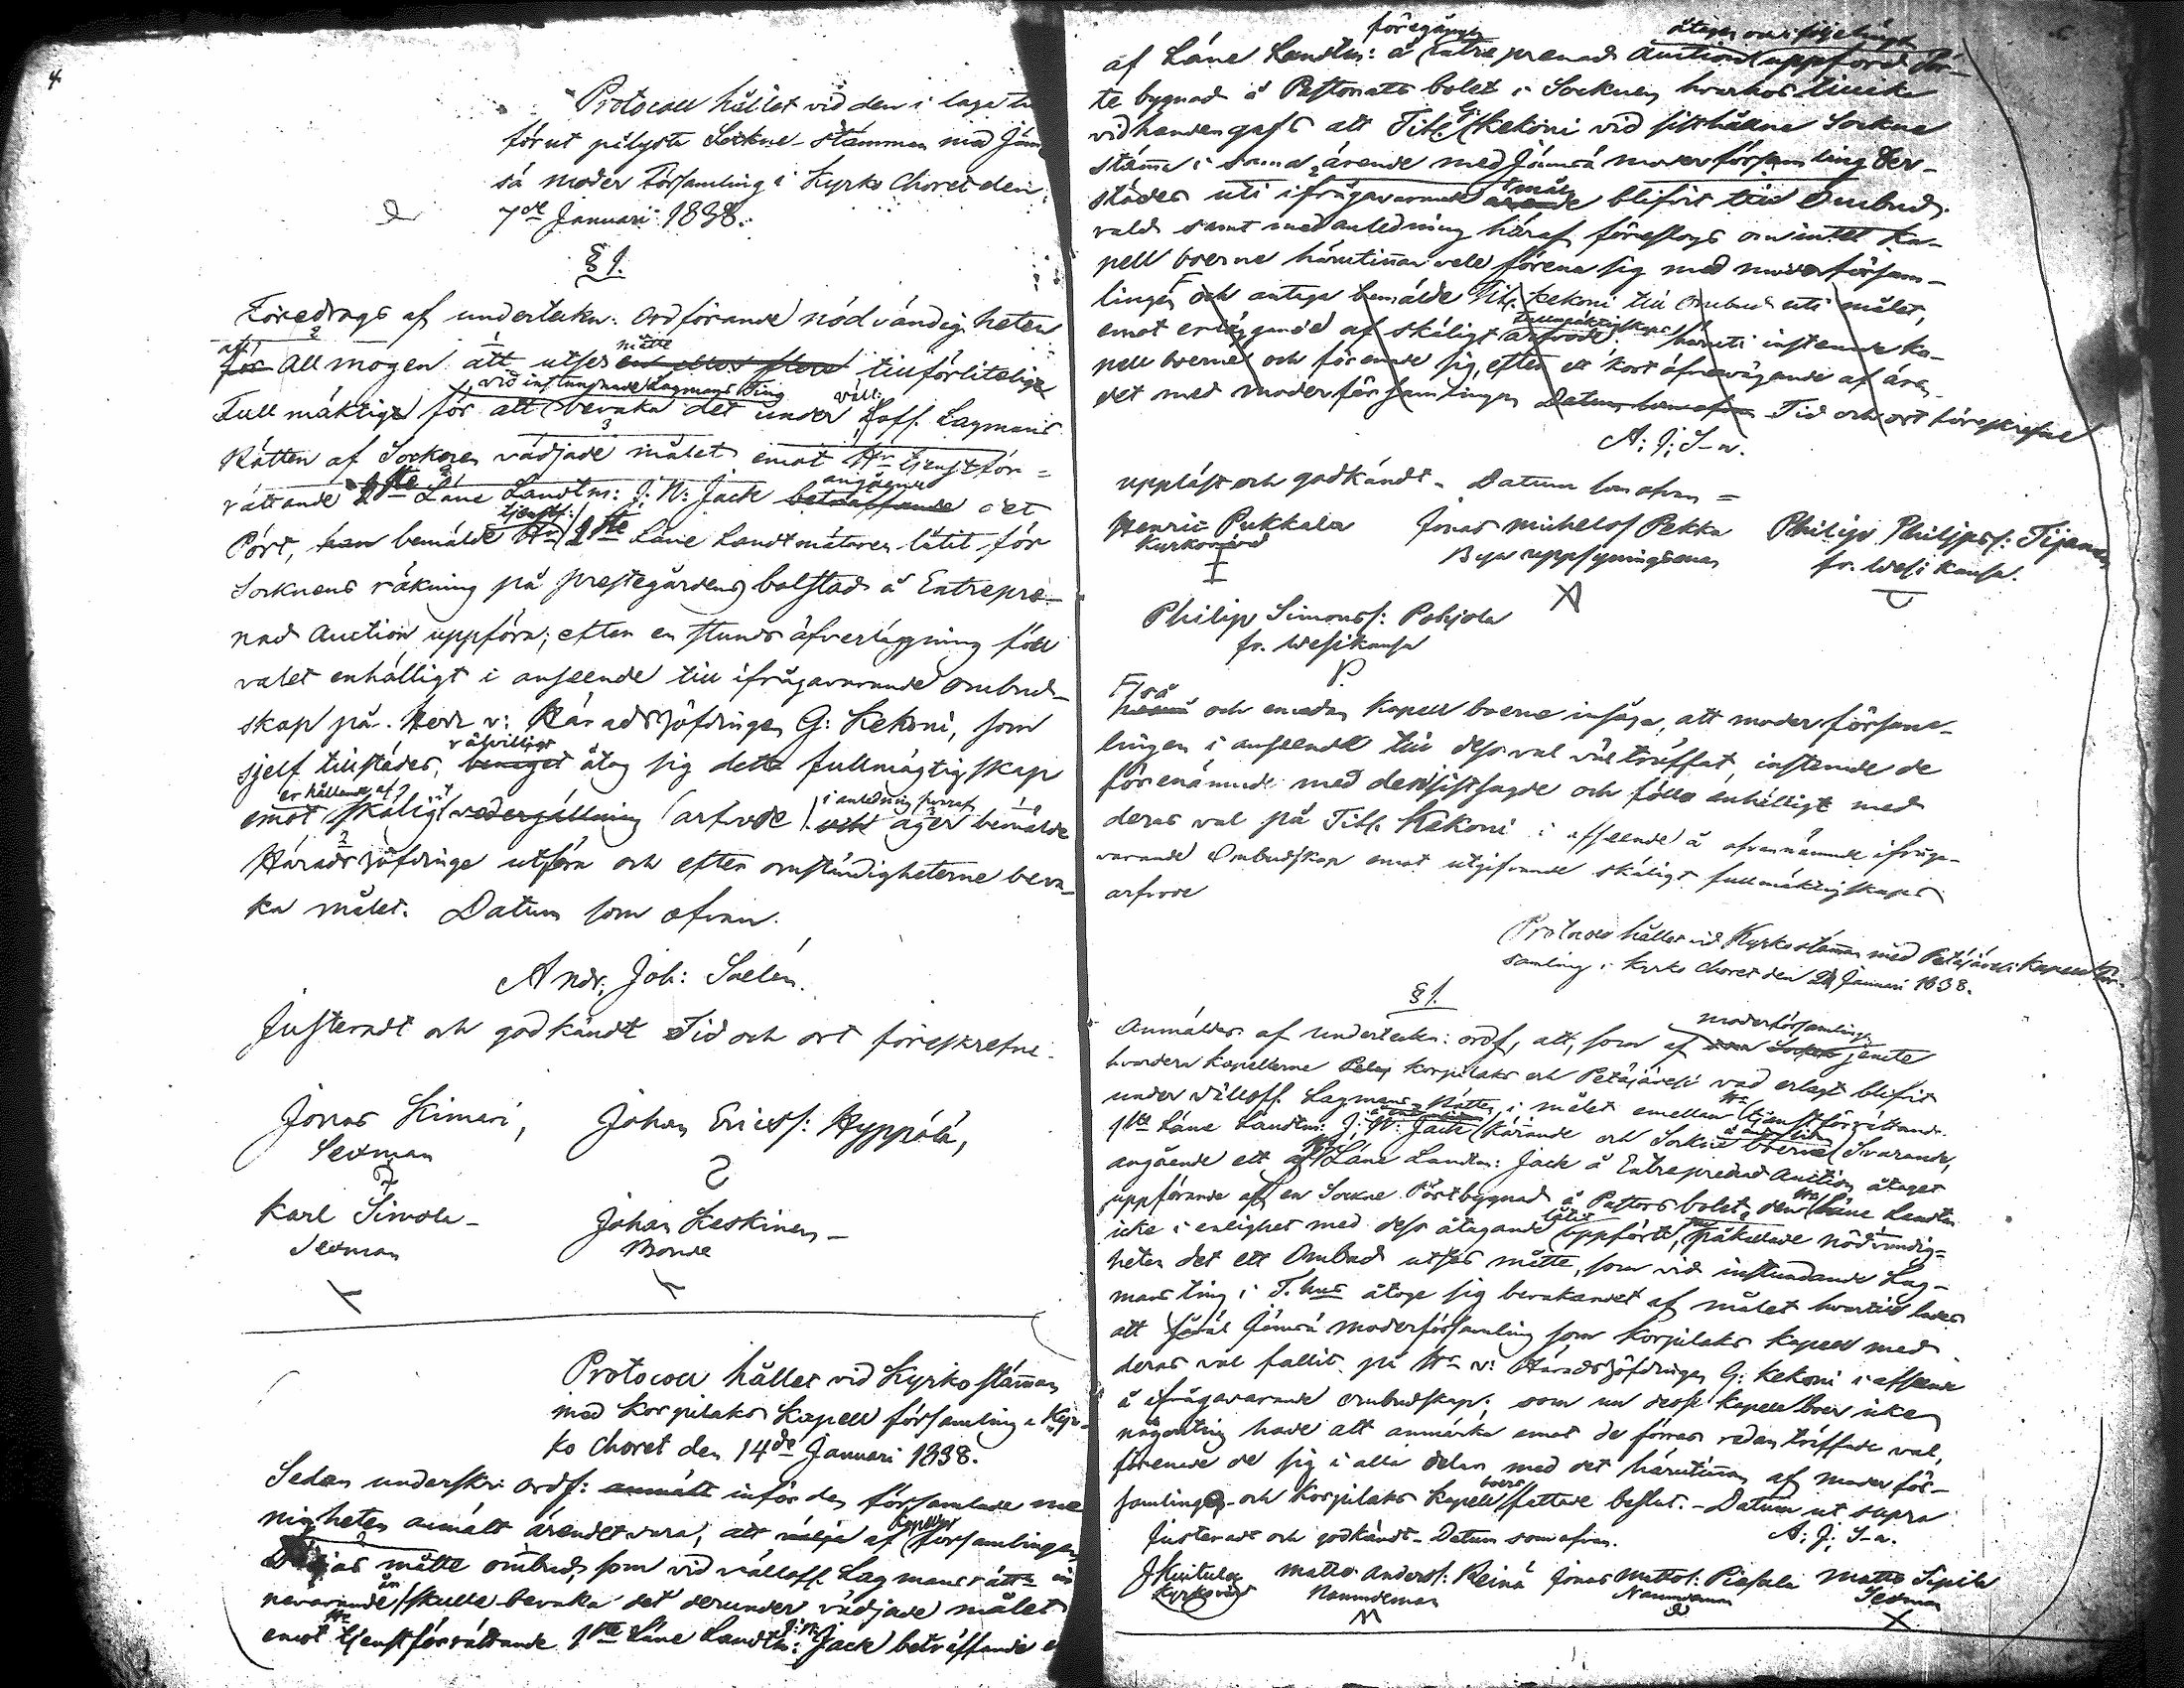 4
Protocoll hållet vid den i laga
förut pålyste Sockne-stämman med Jäm
sä moder Församling i Kyrko Choret den
7de Januari 1838.
§ 1.
Föredrogs af undertekn: ordförande nödvändigheten
att
för Allmogen att utses måtte en eller flere tillförlitelige
vid instundande Lagmans Ting
Fullmäktige för att bevaka det under väll. Loff. Lagmans
Rätten af Socknen vädjade målet emot Hr tjenstför-
rättande 1ste Läne Landtm: J: N: Jack angående beträffande det
Pört, han bemälde Hr tjenstf: 1ste Läne Landtmätaren låtit för
Socknens räkning på prestegårdens bolstad å Entrepre-
nad Auction uppföra; efter en stunds öfverläggning föll
valet enhälligt i anseende till ifrågavarande ombud-
skap på Herr v: Häradshöfdingen G: Kekoni, som
sjelf tillstädes, rättvilligt beneget åtog sig detta fullmägtigskap
erhållande af
emot skäligt vedergällning arfvode. i anledning hvaraf äger bemälde
Häradshöfdinge utföra och efter omständigheterne beva-
ka målet. Datum som ofvan.
Andr: Joh: Saelén.
Justeradt och godkändt Tid och ort föreskrefne.
Jonas Kimari, Johan Ericss: Hyppölä,
Sexman
Karl Simola - Johan Keskinen -
Sexman Bonde
Protocoll hållet vid Kyrkostämman
med Korpilaks Kapell församling i Kyr-
ko Choret den 14de Januari 1838.
Sedan underskr: ordf: anmält inför den församlade me
nigheten anmält ärendet vara, att välja af kapell församlingen
måtte ombud, som vid välloff. Lagmansrätte
närvarande skulle bevaka det derunder vädjade målet
emot Hr tjenstförrättande 1ste Läne Landtm: J: N: Jack beträffande
af Läne Landtm: å föregången Entreprenad Auction åtagen uppförd Pör-
te bygnad å Pastorats bolet i Socknen hvarhos tillika
vidhanden gafs att Tit: G: Kekoni vid sisthållne Sockne
stämma i samma ärende med Jämsä moderförsamling der-
städes uti ifrågavarande mål ärende blifvit till Ombud
vald samt med anledning häraf föreslogs om intet Ka-
pell boerne härutinnan vele förena sig med moderförsam-
lingen och antaga bemälde Tit: Kekoni till ombud uti målet,
emot erläggande af skäligt fullmäktigskaps arfvode. häruti instemde Ka-
pell boerne och förenade sig, efter ett kort öfvervägande af ären-
det med moderförsamlingen Datum som ofvan Tid och ort föreskrefne
A: J: S-n.
uppläst och godkändt - Datum som ofvan =
Henric Pukkala Jonas Michelss Pekka Philip Philipss: Tijanen
Kyrkovärd Byns uppsyningsman fr. Wesikansa.
Philip Simonss: Pohjola
fr. Wesikansa
P.
F så
och emedan Kapell boerne insågo, att moderförsam-
lingen i anseende till dess val väl träffat, instemde de
förenämnde med den sistsagde och föllo enhälligt med
deras val på Tit: Kekoni i afseende å ofvannämnde ifråga-
varande Ombudskap emot utgifvande skäligt fullmäktigskaps
arfvode
Protocoll hållet vid Kyrkostämman med Petäjävesi Kapell För-
samling i Kyrko Choret den 21 Januari 1838.
§ 1.
Anmäldes af undertekn: ordf, att, som af moderförsamlingen jemte
hvardera Kapellerne Korpilaks och Petäjävesi vad erlagt blifvit
under välloff. Lagmans Rätten i målet emellan Hr tjenstförrättande
1ste Läne Landtm: J: N: Jack å ena sidan Kärande och Sockne boerne å andra sidan Svarande,
angående ett af Läne Landtm: Jack å Entreprenad Auction åtaget
uppförande af en Sockne Pörtbygnad å Pastors bolet, den Hr Läne Landtm
icke i enlighet med dess åtagande låtit uppföra, påkallade nödvändig-
heten det ett Ombud utses måtte, som vid instundande Lag-
mans ting i T. hus åtoge sig bevakandet af målet hvartill lades
att såväl Jämsä moderförsamling som Korpilaks Kapell med
deras val fallit på Hr v: Häradshöfdingen G: Kekoni i afseende
å ifrågavarande ombudskap; som nu desse Kapell boer icke
någonting hade att anmärka emot de förras redan träffade val,
förenade de sig i alla delar med det härutinnan af moder för-
samlingen och Korpilaks Kapell boers fattade beslut. - Datum ut supra
Justeradt och godkändt - Datum som ofvan. A: J: S-n.
J Huitula Matts Anderss: Reinä Jonas Mattss: Piesala Matts Sipilä
Kyrkovärd Nämndeman Nämndeman Sexman